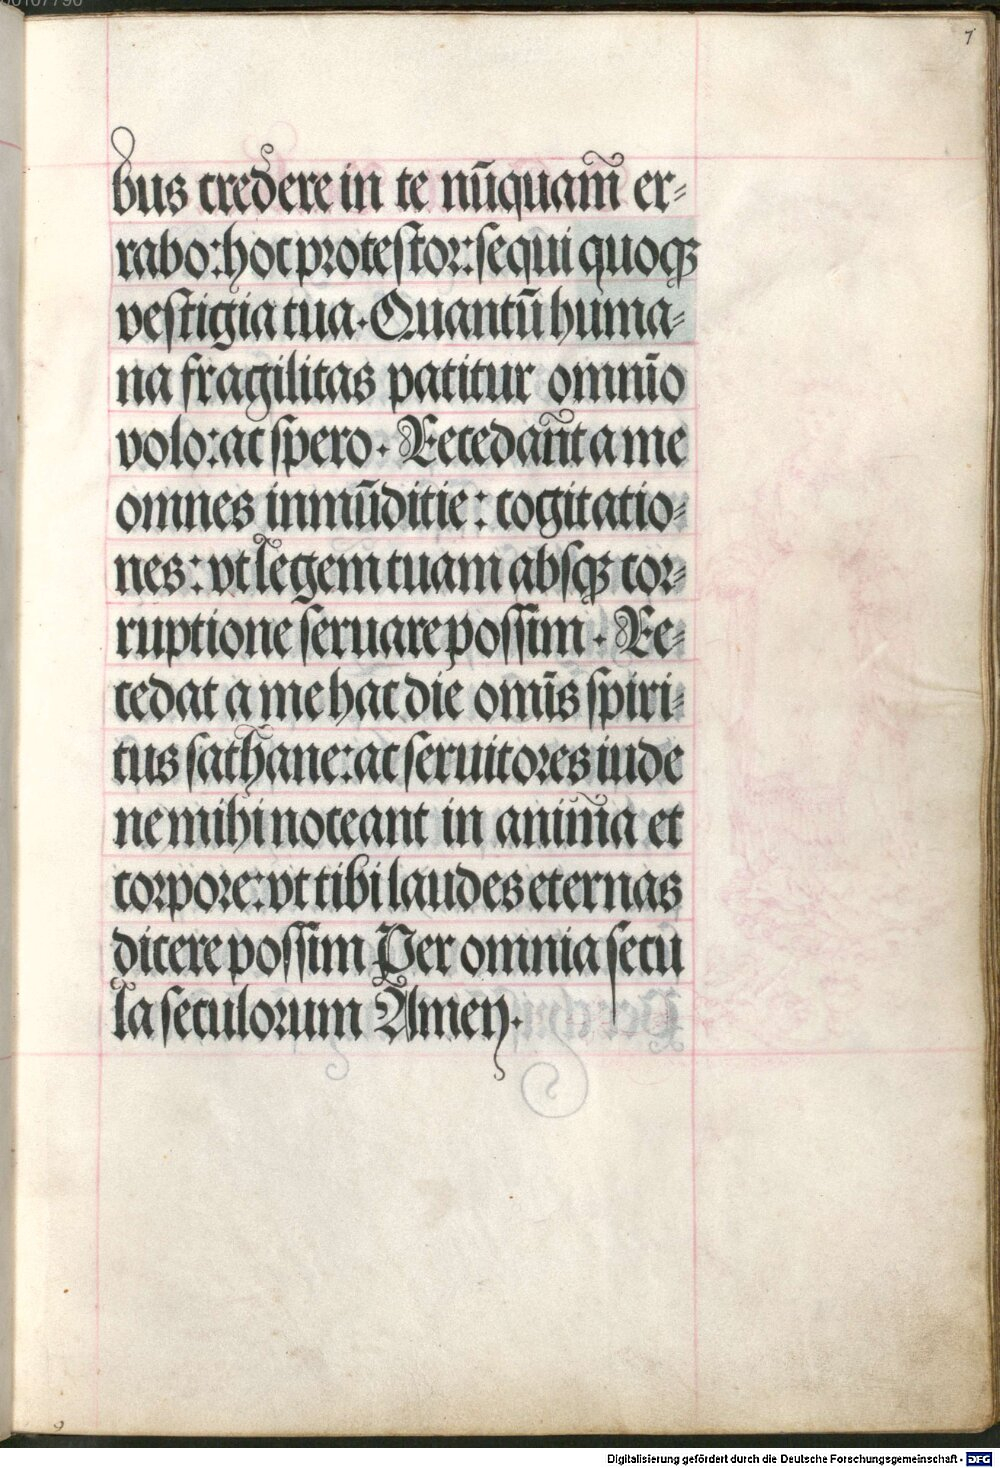 7
bus credere in te nūquam̄ er⸗
rabo: hoc protestor: sequi quoqꝫ
vestigia tua. Quantū huma⸗
na fragilitas patitur omnīo
volo: ac spero. Recedan̄t a me
omnes inmūditie: cogitatio⸗
nes: vt legem tuam absqꝫ cor⸗
ruptione seruare possim. Re⸗
cedat a me hac die omīs spiri⸗
tus sathane: ac seruitores iude
ne mihi noceant in anim̄a et
corpore: vt tibi laudes eternas
dicere possim Per omnia secu
la seculorum Amen.
Digitalisierung gefördert durch die Deutsche Forschungsgemeinschaft - DFG